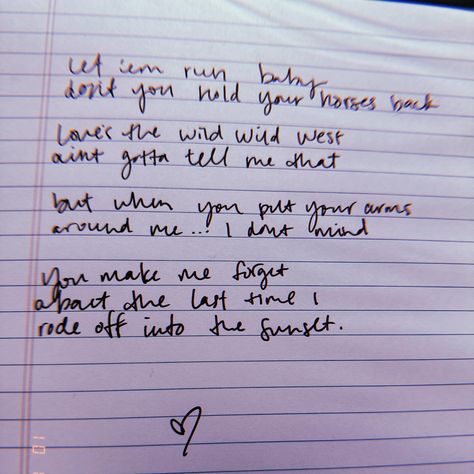 let 'em run baby
don't you hold your horses back
Love's the wild wild west
aint gotta tell me that
but when you put your arms
around me... I dont mind
You make me forget
about the last time I
rode off into the sunset.